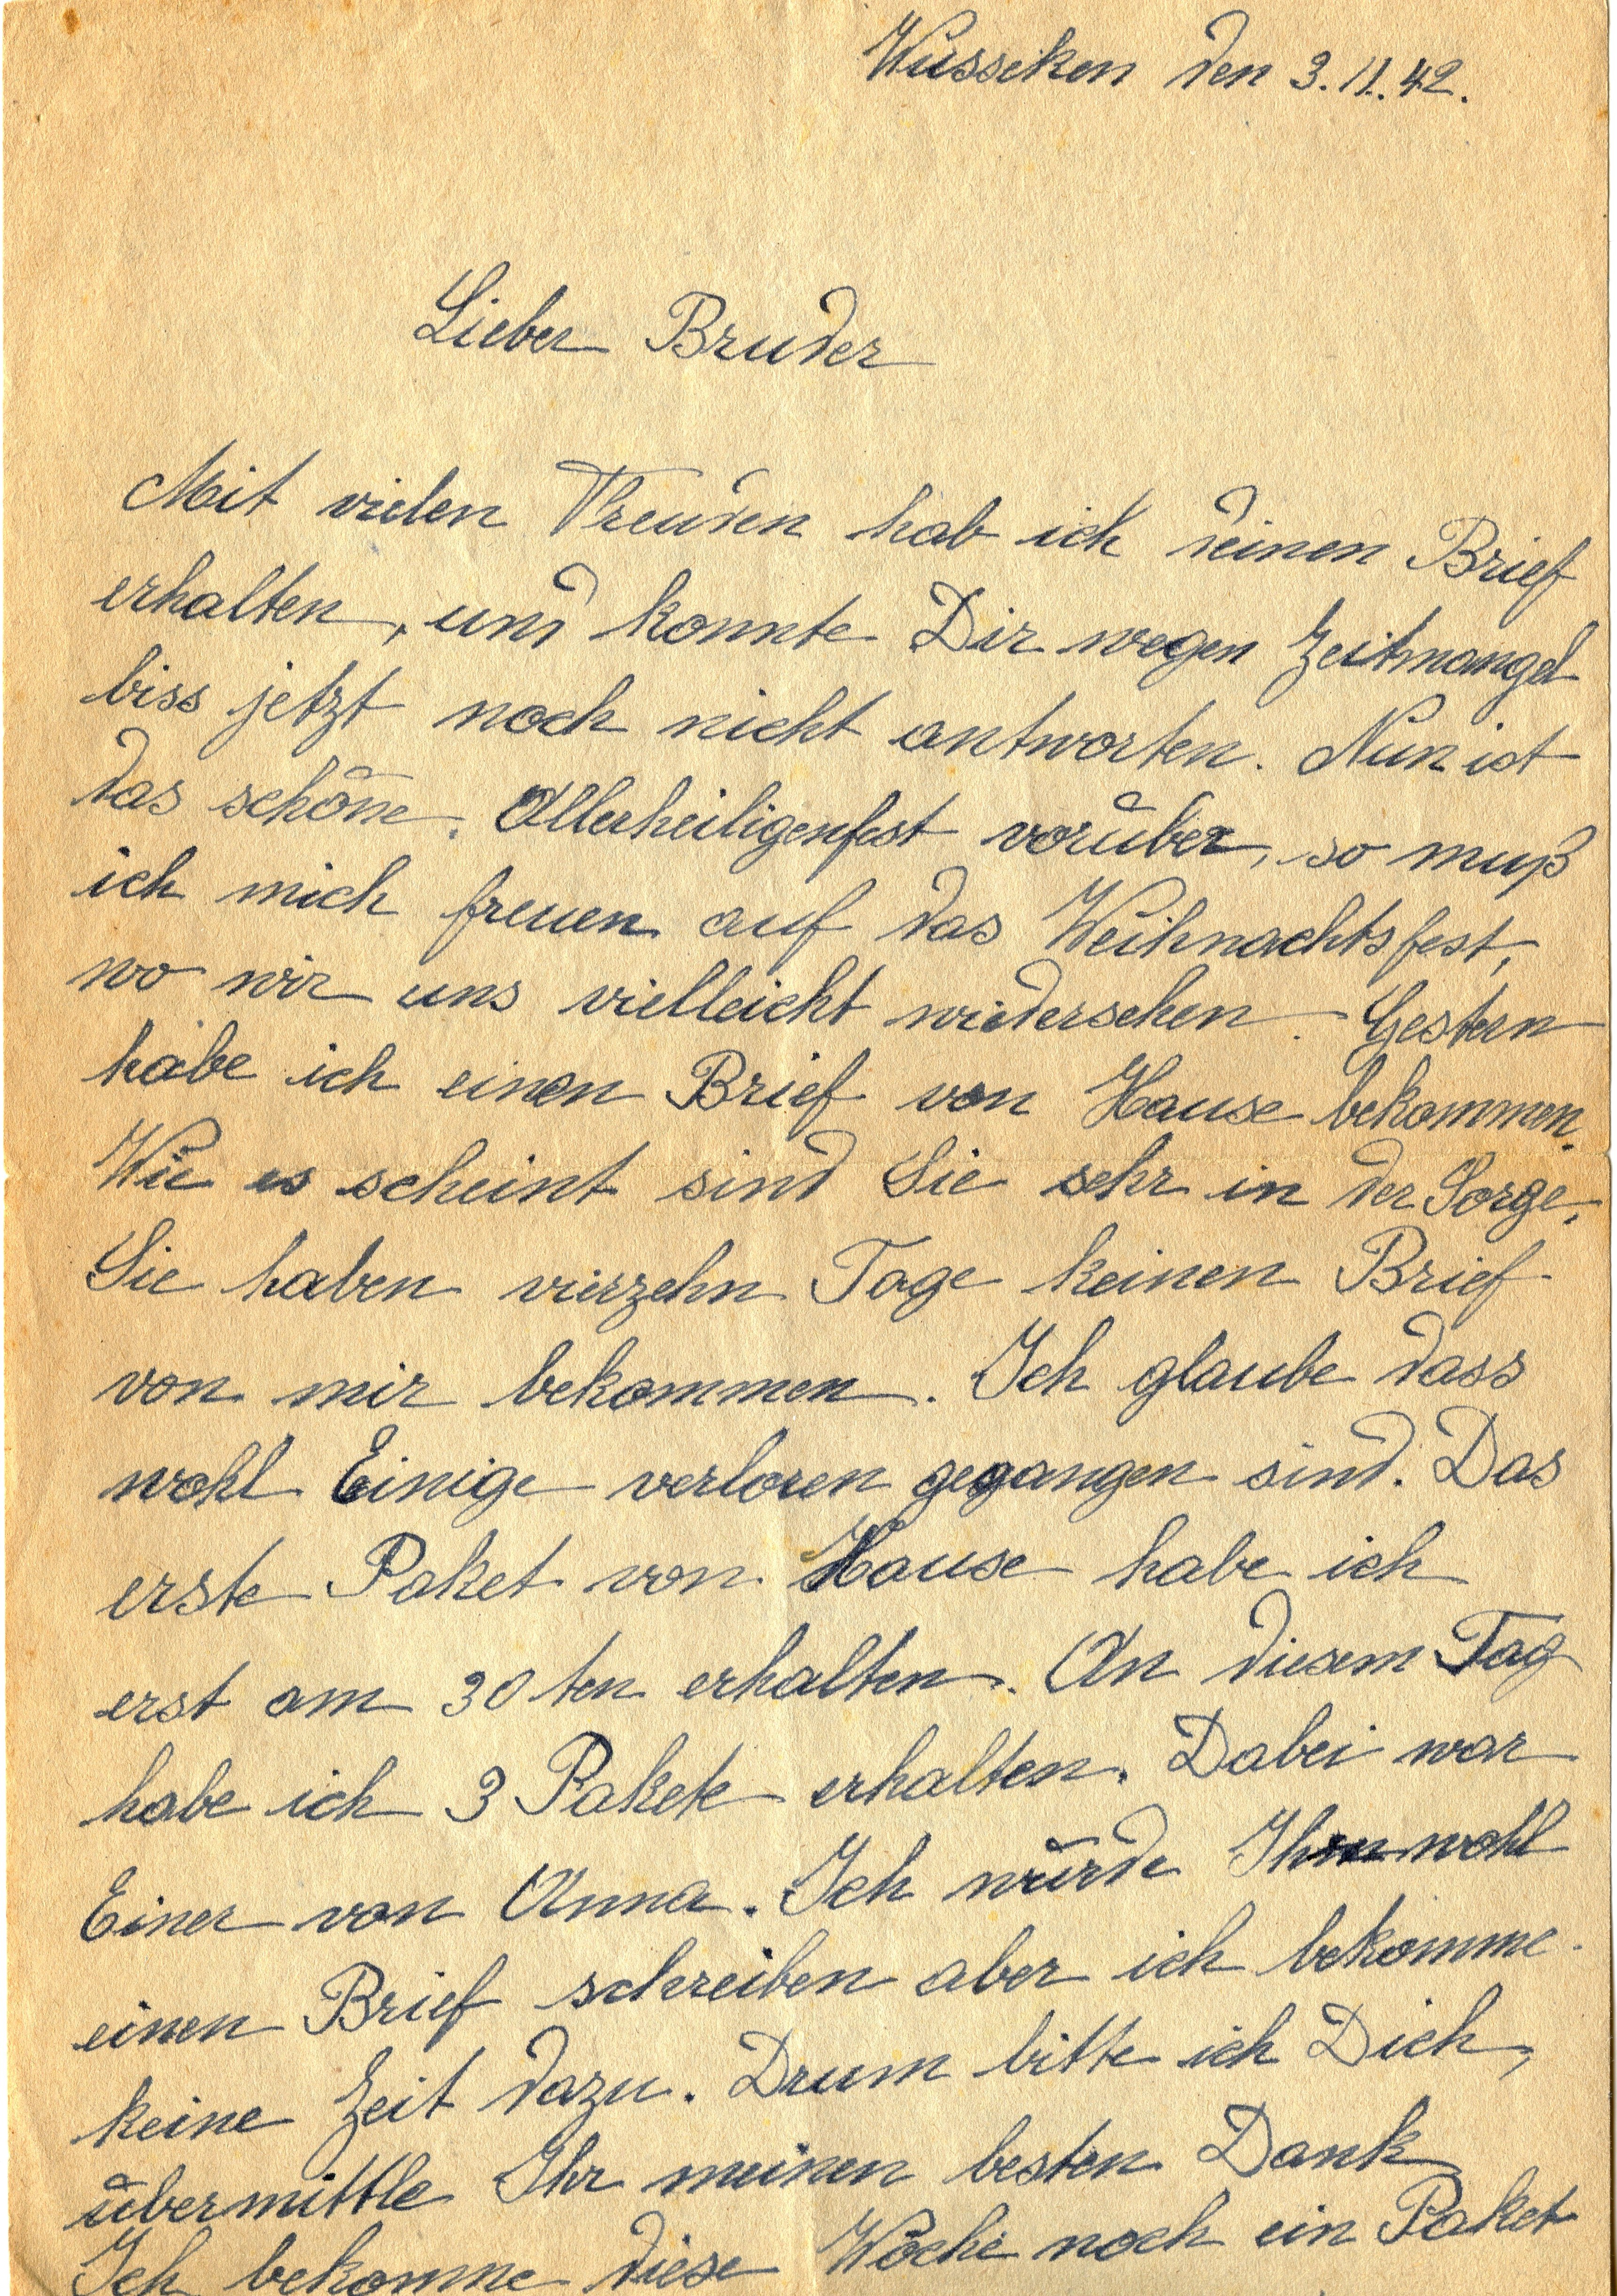 Wusseken den 3.11.42.
Lieber Bruder
Mit vielen Freuden hab ich deinen Brief
erhalten, und konnte Dir wegen Zeitmangel
biss jetzt noch nicht antworten. Nun ist
das schöne Allerheiligenfest vorüber, so muß
ich mich freuen auf das Weihnachtsfest,
wo wir uns vielleicht wiedersehen. Gestern
habe ich einen Brief von Hause bekommen.
Wie es scheint sind Sie sehr in der Sorge,
Sie haben vierzehn Tage keinen Brief
von mir bekommen. Ich glaube dass
wohl Einige verloren gegangen sind. Das
erste Paket von Hause habe ich
erst am 30ten erhalten. An diesem Tag
habe ich 3 Pakete erhalten. Dabei war
Einer von Anna. Ich würde wohl
einen Brief schreiben aber ich bekomme
keine Zeit dazu. Drum bitte ich Dich,
übermittle Ihr meinen besten Dank
Ich bekomme diese Woche noch ein Paket